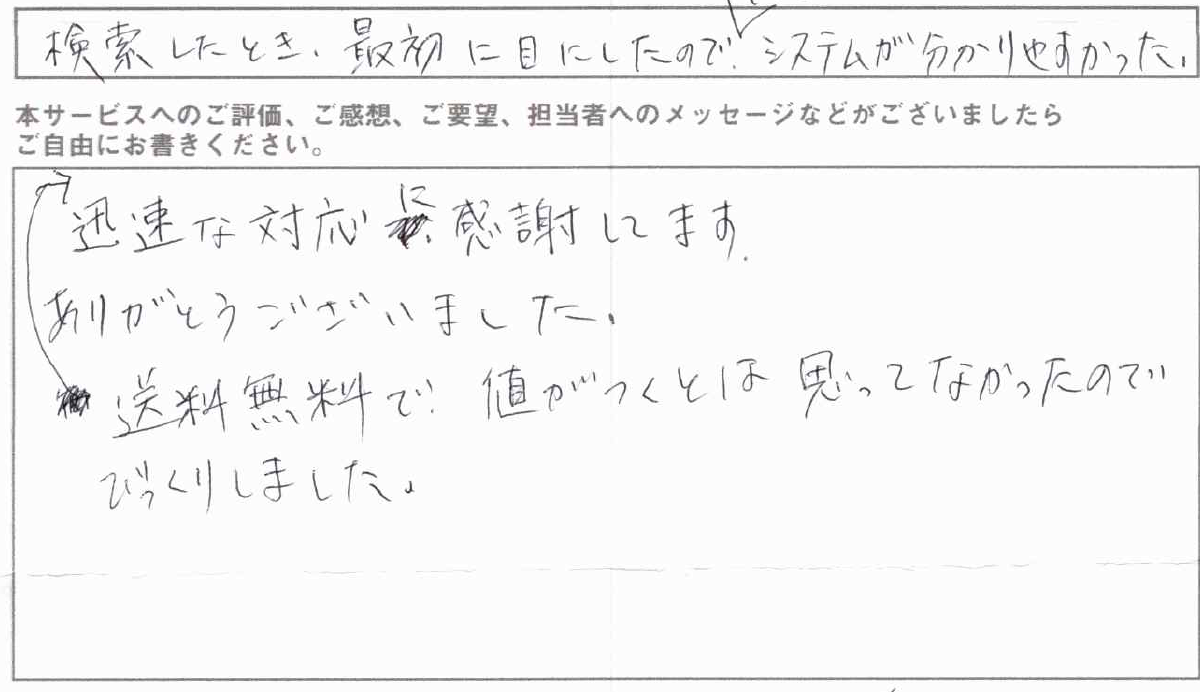 検索したとき、最初に目にしたので、システムが分かりやすかった。
本サービスへのご評価、ご感想、ご要望、担当者へのメッセージなどがございましたら
ご自由にお書きください。
迅速な対応に感謝してます。
ありがとうございました。
送料無料で、値がつくとは思ってなかったので
びっくりしました。